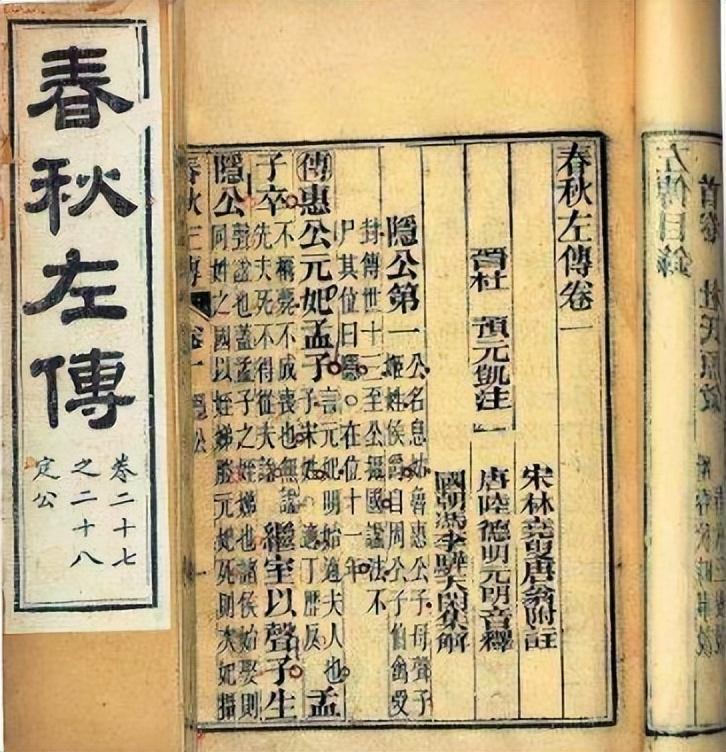 左傳目錄
首卷 杜氏原敘
春秋左傳卷一
宋林堯叟唐翁附註
晉杜 預元凱注
唐陸德明元明音釋
國朝馮李驊天閑集解
隱公第一
公名息姑魯惠公子母聲子
姬姓侯爵自周公子伯禽受
封傳世十三至公攝國諡法不
尸其位曰隱。在位十一年
傳惠公元妃孟子
言元妃明始適夫人也
子宋姓。適丁歷反
孟
子卒
不稱薨不成喪也無諡
先夫死不得從夫諡
繼室以聲子生
隱公
聲諡也蓋孟子之姪娣也諸侯始娶則
同姓之國以姪娣媵元妃死則次妃攝
春秋左傳 卷一 隱公 一
春秋左傳
卷二十七
之二十八
定公